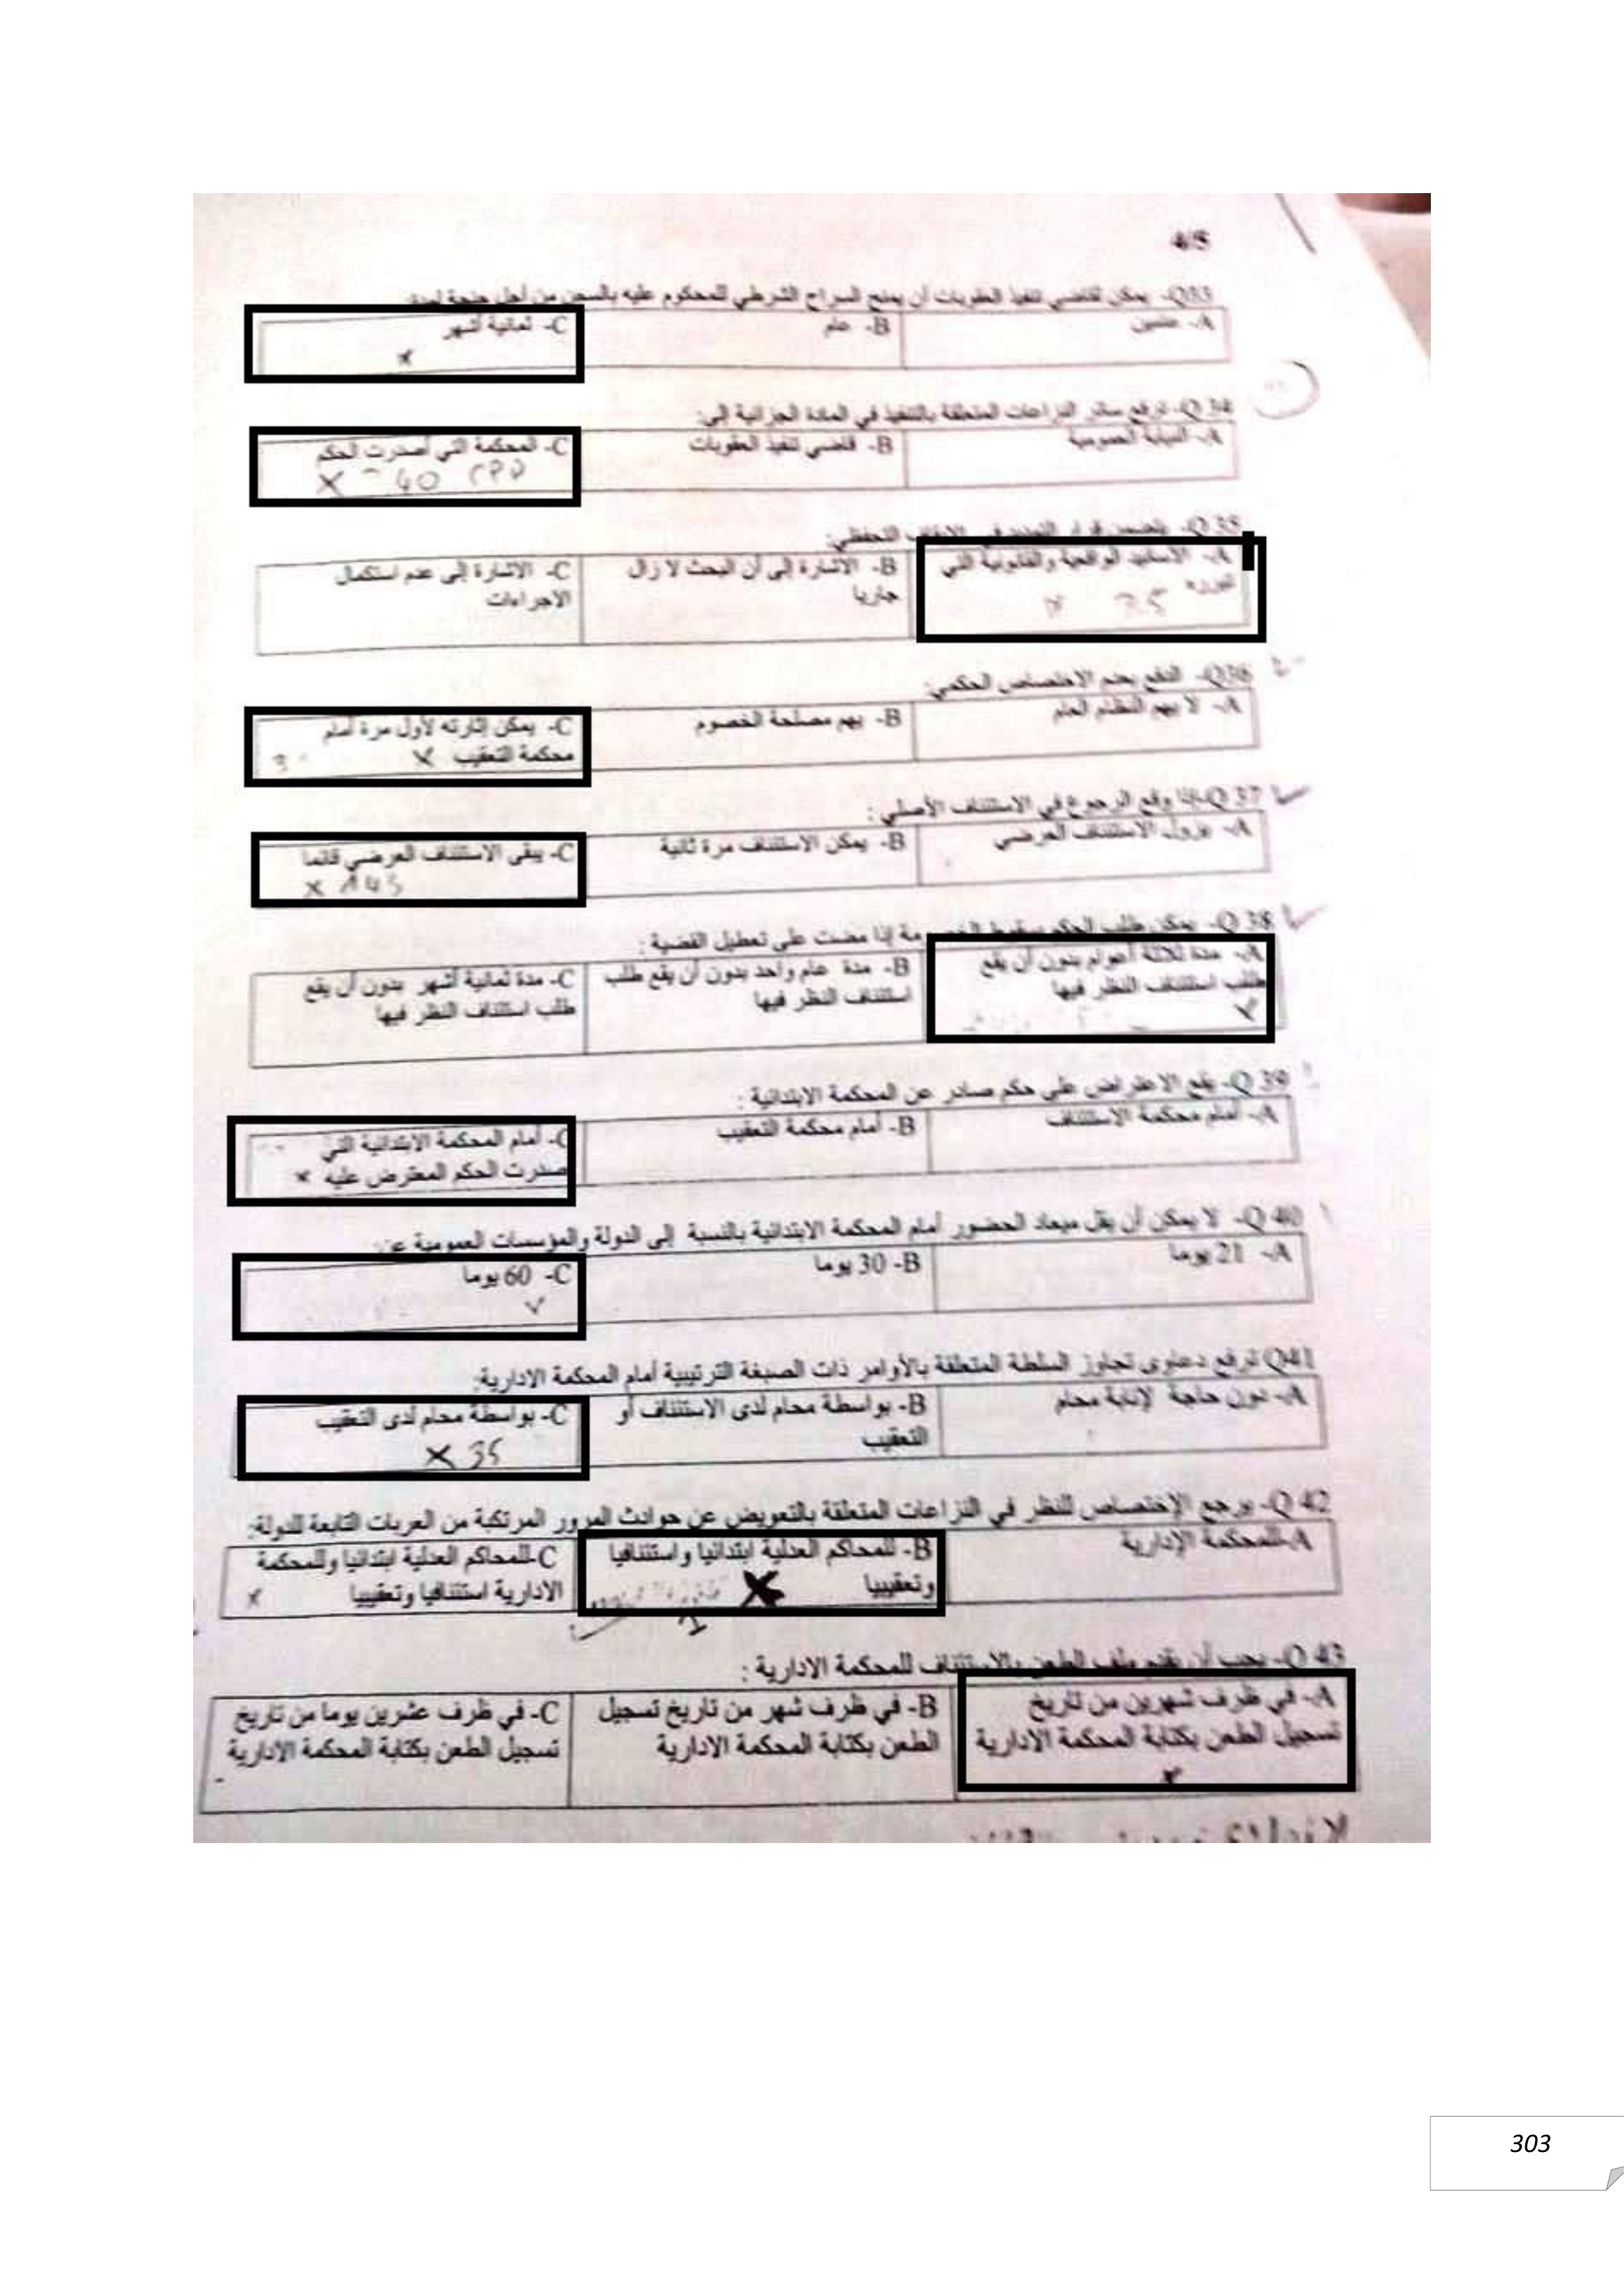 4/5
Q33- يمكن لقاضي تنفيذ العقوبات أن يمنح السراح الشرطي للمحكوم عليه بالسجن من أجل جنحة لمدة:
A- عامين
B- عام
C- ثمانية أشهر
x
Q 34- ترفع سائر النزاعات المتعلقة بالتنفيذ في المادة الجزائية إلى:
A- النيابة العمومية
B- قاضي تنفيذ العقوبات
C- المحكمة التي أصدرت الحكم
X 40 CPP
Q 35- يتضمن قرار التمديد في الإيقاف التحفظي:
A- الأسانيد الواقعية والقانونية التي
تبرره
x
B- الاشارة إلى أن البحث لا زال
جاريا
C- الاشارة إلى عدم استكمال
الاجراءات
Q36- الدفع بعدم الاختصاص الحكمي:
A- لا يهم النظام العام
B- يهم مصلحة الخصوم
C- يمكن إثارته لأول مرة أمام
محكمة التعقيب x 3
Q 37-إذا وقع الرجوع في الاستئناف الأصلي :
A- يزول الاستئناف العرضي
B- يمكن الاستئناف مرة ثانية
C- يبقى الاستئناف العرضي قائما
x 145
Q 38- يمكن طلب الحكم بسقوط الخصومة إذا مضت على تعطيل القضية :
A- مدة ثلاثة أعوام بدون أن يقع
طلب استئناف النظر فيها
x
B- مدة عام واحد بدون أن يقع طلب
استئناف النظر فيها
C- مدة ثمانية أشهر بدون أن يقع
طلب استئناف النظر فيها
Q 39- يقع الاعتراض على حكم صادر عن المحكمة الابتدائية :
A- أمام محكمة الاستئناف
B- أمام محكمة التعقيب
C- أمام المحكمة الابتدائية التي
صدرت الحكم المعترض عليه x
Q 40- لا يمكن أن يقل ميعاد الحضور أمام المحكمة الابتدائية بالنسبة إلى الدولة والمؤسسات العمومية عن:
A- 21 يوما
B- 30 يوما
C- 60 يوما
Q41 ترفع دعاوى تجاوز السلطة المتعلقة بالأوامر ذات الصبغة الترتيبية أمام المحكمة الإدارية:
A- دون حاجة لإنابة محام
B- بواسطة محام لدى الاستئناف أو
التعقيب
C- بواسطة محام لدى التعقيب
X 35
Q 42- يرجع الإختصاص للنظر في النزاعات المتعلقة بالتعويض عن حوادث المرور المرتكبة من العربات التابعة للدولة:
A-للمحكمة الإدارية
B- للمحاكم العدلية ابتدائيا واستئنافيا
وتعقيبيا X
C-للمحاكم العدلية ابتدائيا وللمحكمة
الادارية استئنافيا وتعقيبيا x
Q 43- يجب أن يقدم ملف الطعن بالاستئناف للمحكمة الادارية :
A- في ظرف شهرين من تاريخ
تسجيل الطعن بكتابة المحكمة الادارية
B- في ظرف شهر من تاريخ تسجيل
الطعن بكتابة المحكمة الادارية
C- في ظرف عشرين يوما من تاريخ
تسجيل الطعن بكتابة المحكمة الادارية
303